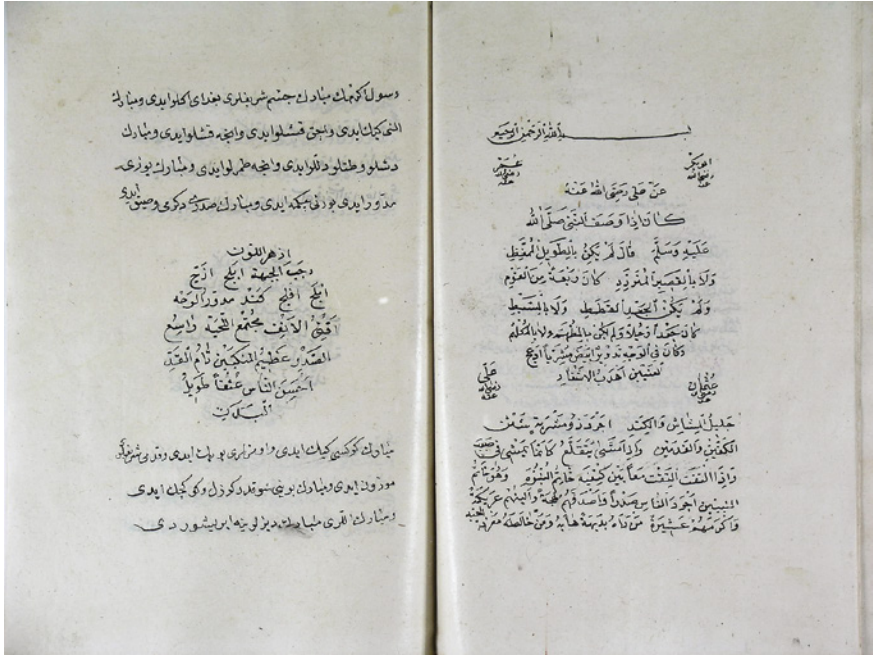 بسم الله الرحمن الرحيم
ابوبكر رضى الله عنه عمر رضى الله عنه
عن على رضى الله عنه
كان اذا وصف النبى صلى الله
عليه وسلم قال لم يكن بالطويل الممغط
ولا بالقصير المتردد كان ربعة من القوم
ولم يكن الجعد القطط ولا بالسبط
كان جعدا رجلا ولم يكن بالمطهم ولا بالمكلثم
وكان فى الوجه تدوير ابيض مشربا ادعج
العينين اهدب الاشفار
عثمان رضى الله عنه على رضى الله عنه
جليل المشاش والكتد اجرد ذو مسربة شثن
الكفين والقدمين واذا مشى يتقلع كانما يمشى فى صبب
واذا التفت التفت معا بين كتفيه خاتم النبوة وهو خاتم
النبيين اجود الناس صدرا واصدقهم لهجة والينهم عريكة
واكرمهم عشيرة من راه بديهة هابه ومن خالطه معرفة احبه
رسول اكرمك مبارك جسم شريفلرى بغداى اكلو ايدى ومبارك
النى كيك ايدى واجق قشلو ايدى وانجه قشلو ايدى ومبارك
دشلو وطتلو دللو ايدى وانجه طمرلو ايدى ومبارك يوزى
مدور ايدى بورنى چكمه ايدى ومبارك صدرى دكرمى وصيق ايدى
ازهر اللون
رحب الجبهة ابلج ازج
ابلج افلج كتد مدور الوجه
اقنى الانف مجتمع اللحية واسع
الصدر عظيم المنكبين تام القد
احسن الناس عنقا طويل
اليدين
مبارك كوكسى كيك ايدى واوموزلرى يومرى ايدى وقد شريفلرى
موزون ايدى ومبارك بوينى سودد كوزل وكوكجك ايدى
ومبارك اللرى مبارك ديزلرينه ايريشوردى